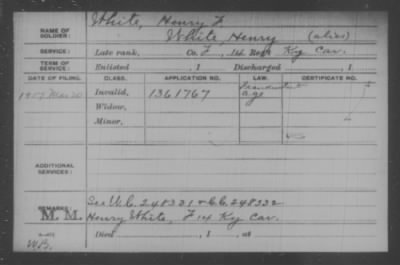 White, Henry F
NAME OF SOLDIER: White, Henry (alias)
SERVICE: Late rank, Co. F, 14 Reg't Ky Cav.
TERM OF SERVICE: Enlisted , 1 Discharged , 1
DATE OF FILING. CLASS. APPLICATION NO. LAW. CERTIFICATE NO.
1907 Mar 20 Invalid, 1361767
age
Widow,
Minor,
ADDITIONAL SERVICES:
REMARKS: See W.C. 248331 & C.C. 248332
M. M. Henry White, F 14 Ky Cav.
Died , 1 , at